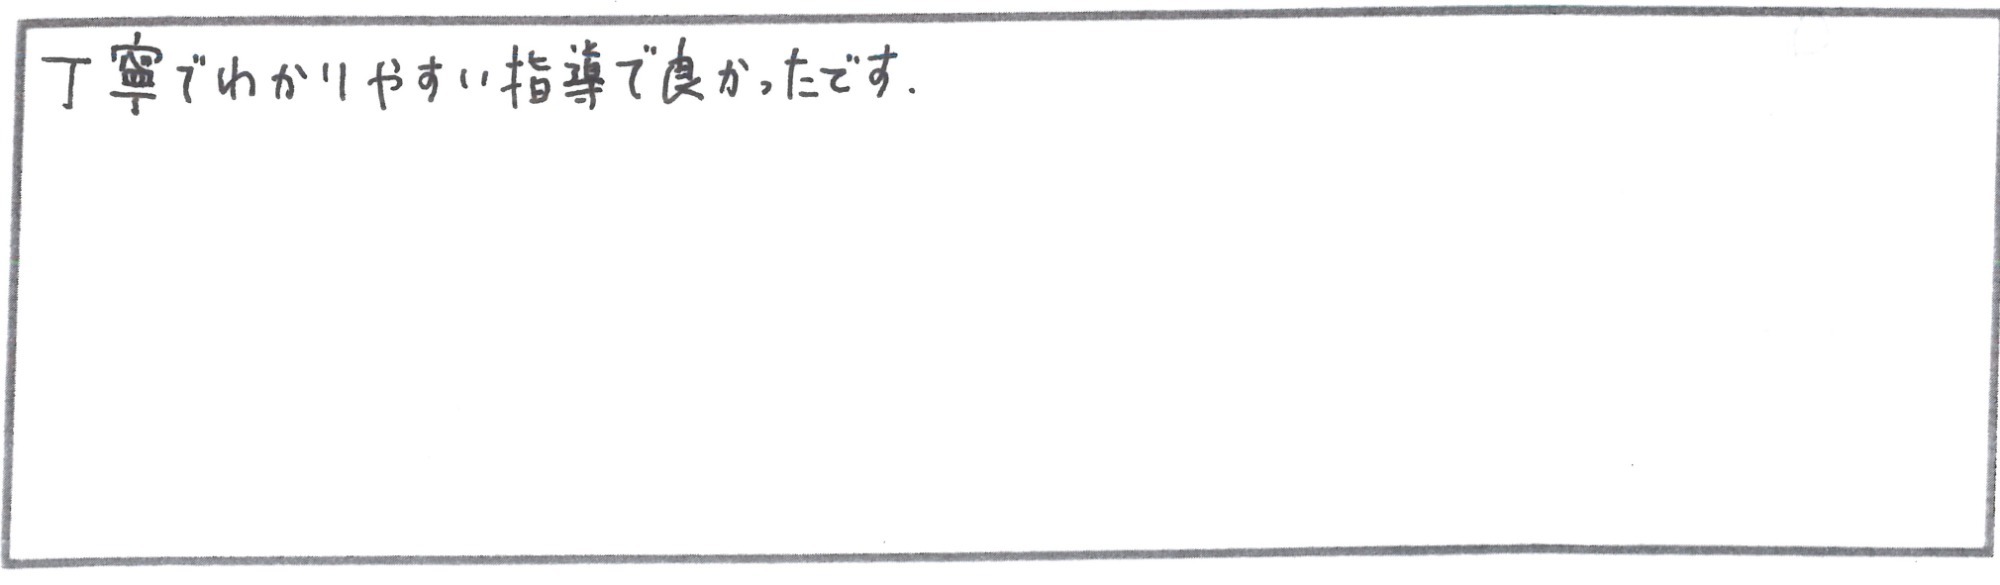 丁寧でわかりやすい指導で良かったです.